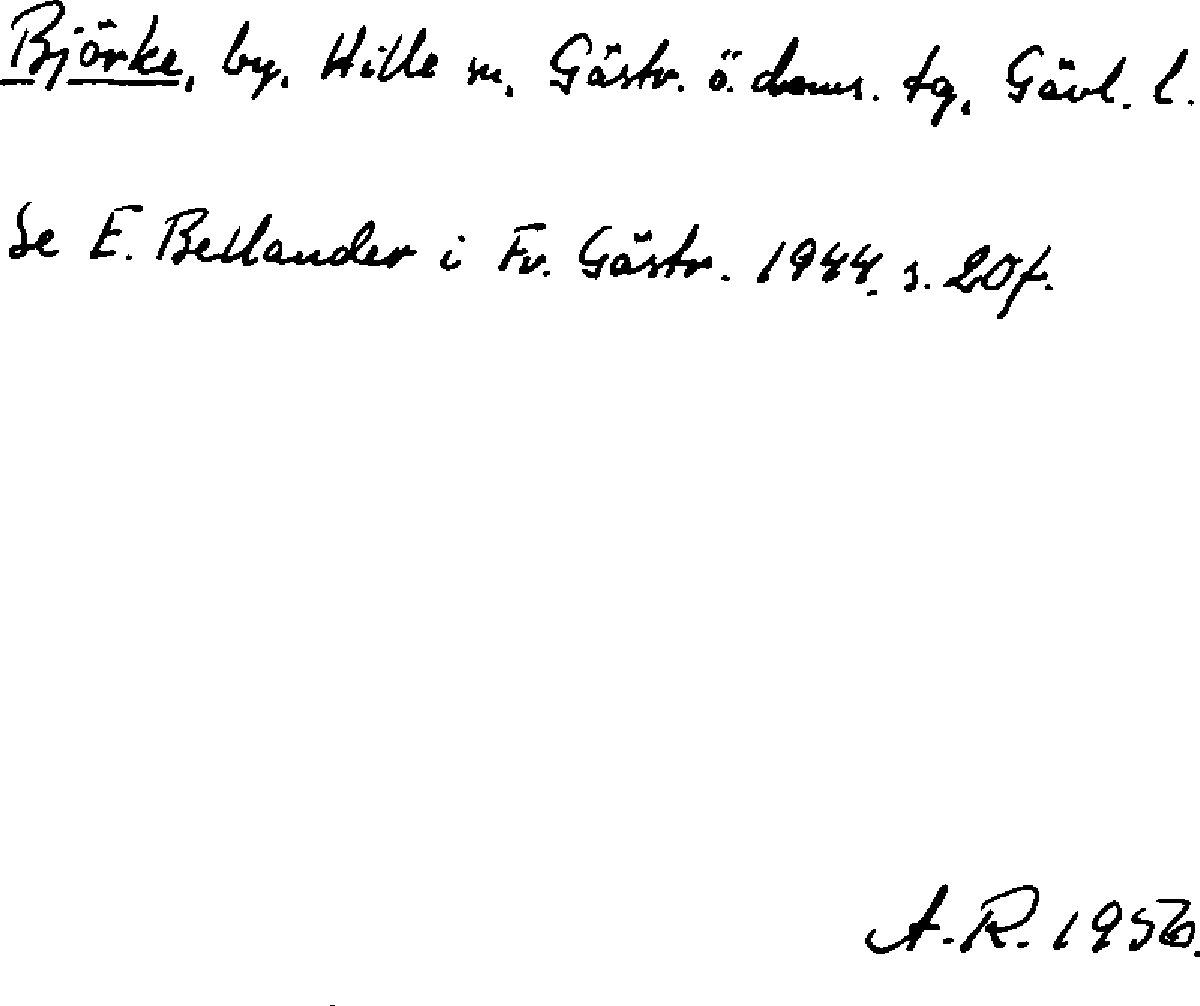 Björke, by, Hille sn, Gästr. ö. doms. tg, Gävl. l.
Se E. Bellander i Fv. Gästr. 1944. s. 20f.
A.R. 1956.